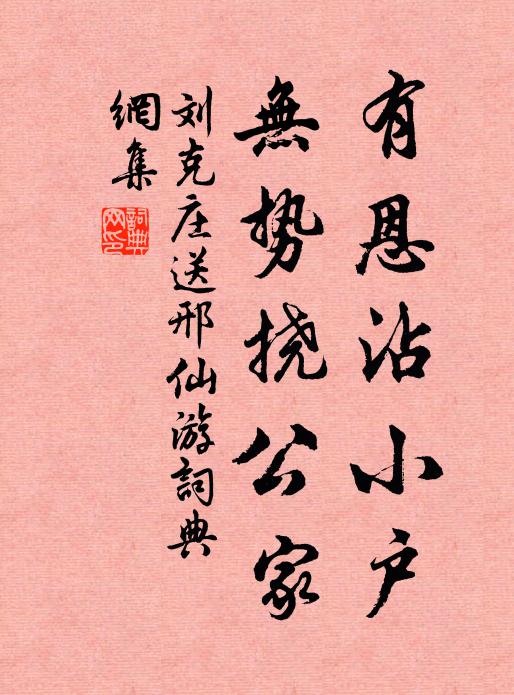 有恩沾小户
無势挠公家
刘克庄送邢仙游詞典
網集
詞典
网印